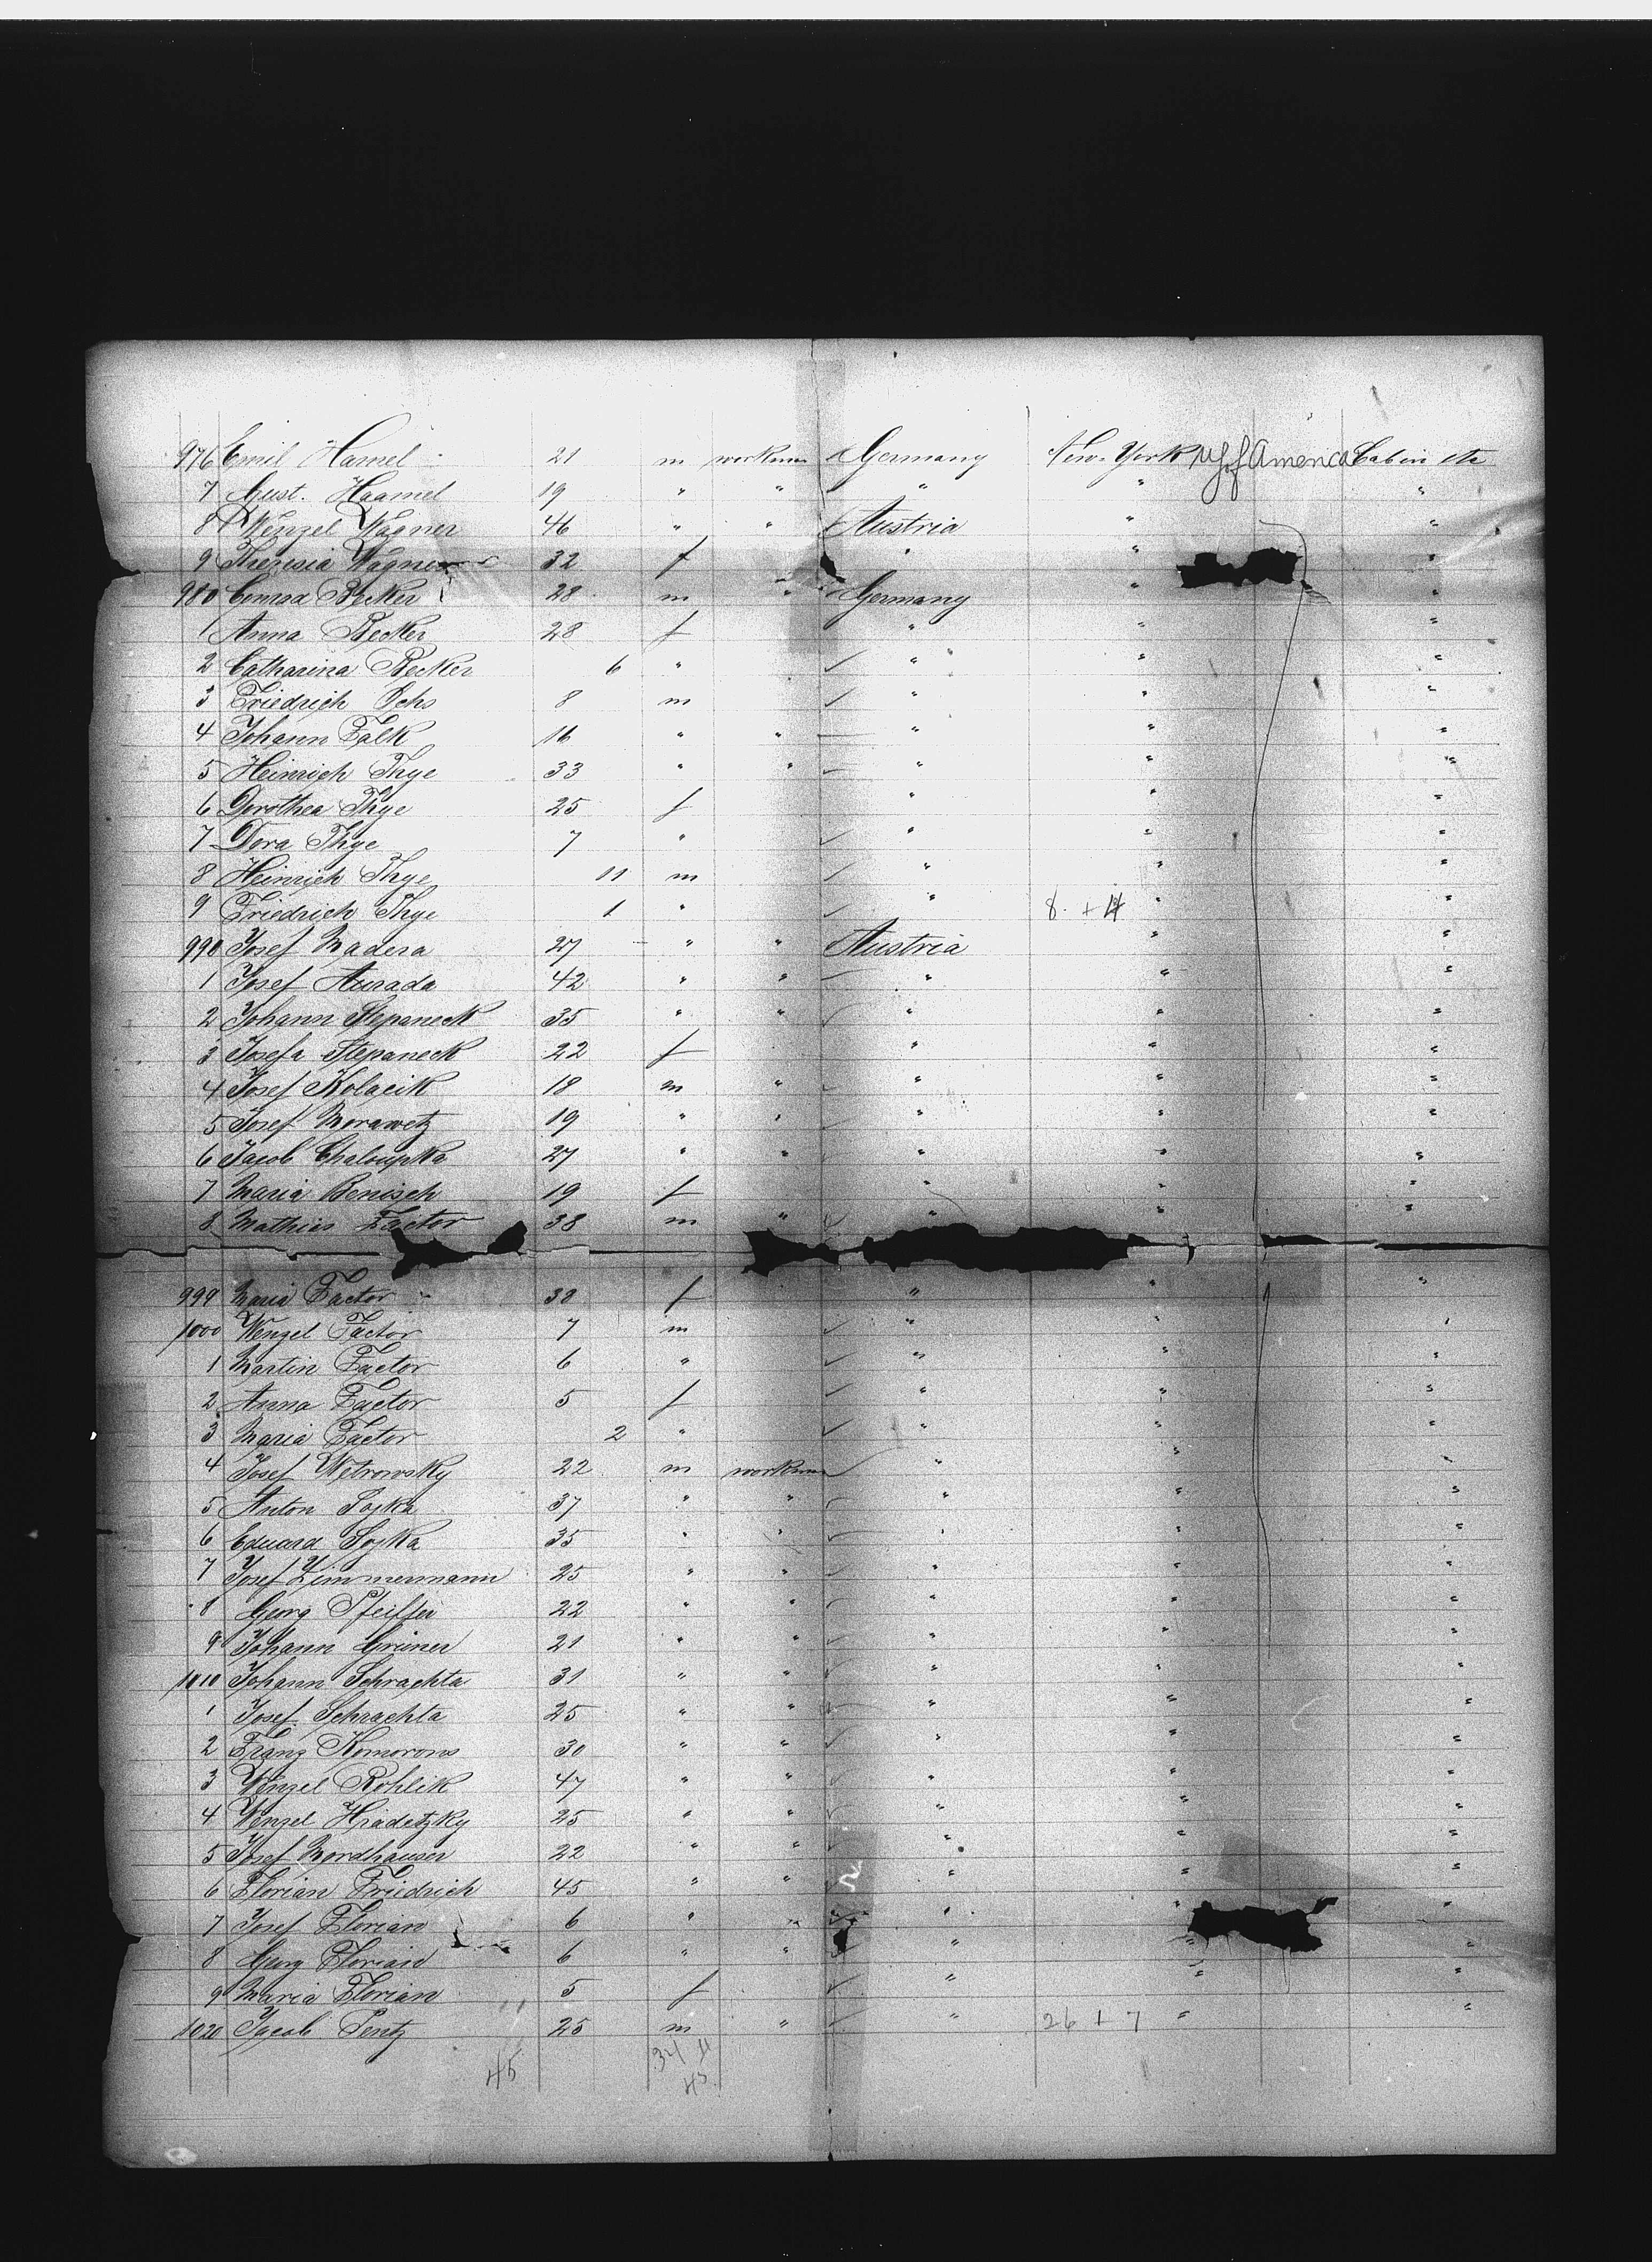 976 Emil Hamel 21 m workman Germany New-York U S of America Cabin etc
7 Gust. Haamel 19 " " " " "
8 Wenzel Wagner 46 " " Austria " "
9 Theresia Wagner 32 f " " "
980 Conrad Becker 28 m " Germany " "
1 Anna Becker 28 f " " "
2 Catharina Becker 6 " " " "
3 Friedrich Ochs 8 m " " "
4 Johann Falk 16 " " " " "
5 Heinrich Thye 33 " " " " "
6 Dorothea Thye 25 f " " "
7 Dora Thye 7 " " " "
8 Heinrich Thye 11 m " " "
9 Friedrich Thye 1 " " 8 + 4 " "
990 Josef Madera 27 " " Austria " "
1 Josef Aurada 42 " " " " "
2 Johann Stepaneck 35 " " " " "
3 Josefa Stepaneck 22 f " " "
4 Josef Kolacik 18 m " " " "
5 Josef Morawetz 19 " " " " "
6 Jacob Chaloupka 27 " " " " "
7 Maria Benisch 19 f " " "
8 Mathias Factor 38 m " " " "
999 Maria Factor 38 f " " "
1000 Wenzel Factor 7 m " " "
1 Martin Factor 6 " " " "
2 Anna Factor 5 f " " "
3 Maria Factor 2 " " " "
4 Josef Wetrowsky 22 m workman " " "
5 Anton Sojka 37 " " " " "
6 Eduard Sojka 35 " " " " "
7 Josef Zimmermann 25 " " " " "
8 Georg Pfeiffer 22 " " " " "
9 Johann Grüner 21 " " " " "
1010 Johann Schrachta 31 " " " " "
1 Josef Schrachta 25 " " " " "
2 Franz Komorous 30 " " " " "
3 Wenzel Rohlik 47 " " " " "
4 Wenzel Hradetzky 25 " " " " "
5 Josef Nordhauser 22 " " " " "
6 Florian Friedrich 45 " " " " "
7 Josef Florian 6 " " " " "
8 Georg Florian 6 " " " " "
9 Maria Florian 5 f " " "
1020 Jacob Pentz 25 m " " 26 + 7 " "
45 34 11
45